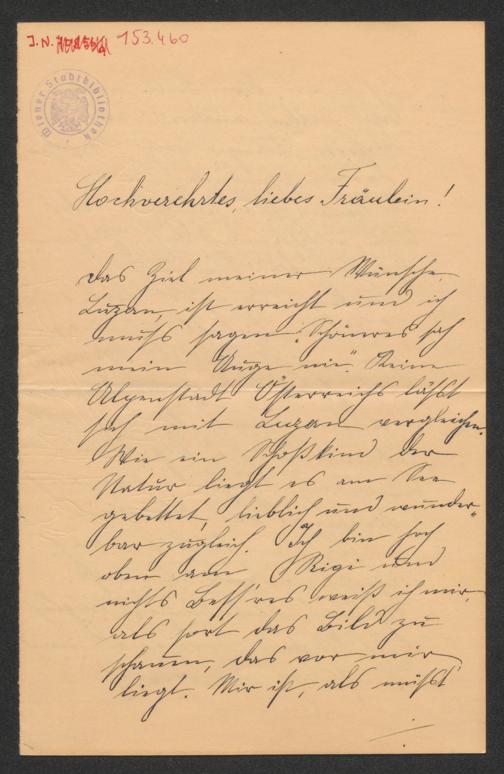 J.N. 153.460
Wiener Stadtbibliothek
Hochverehrtes, liebes Fräulein!
Das Ziel meiner Wünsche,
Luzern, ist erreicht und ich
muß sagen „Schöneres sah
mein Auge nie". Keine
Alpenstadt Österreichs läßt
sich mit Luzern vergleichen.
Wie ein Schoßkind der
Natur liegt es am See
gebettet, lieblich und wunder-
bar zugleich. Ich bin hoch
oben am Rigi und
nichts Bess'res weiß ich mir,
als fort das Bild zu
schauen, das vor mir
liegt. Mir ist, als müßt'